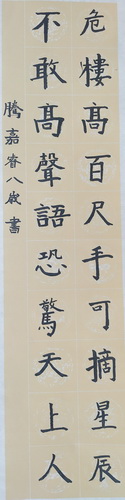 危樓高百尺手可摘星辰
不敢高聲語恐驚天上人
騰嘉睿八歲書